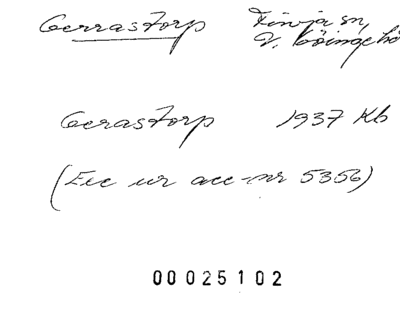 Gerrastorp Finja sn,
V. Göingehä
Gerastorp 1937 Kb
(Exc ur acc-nr 5356)
00025102